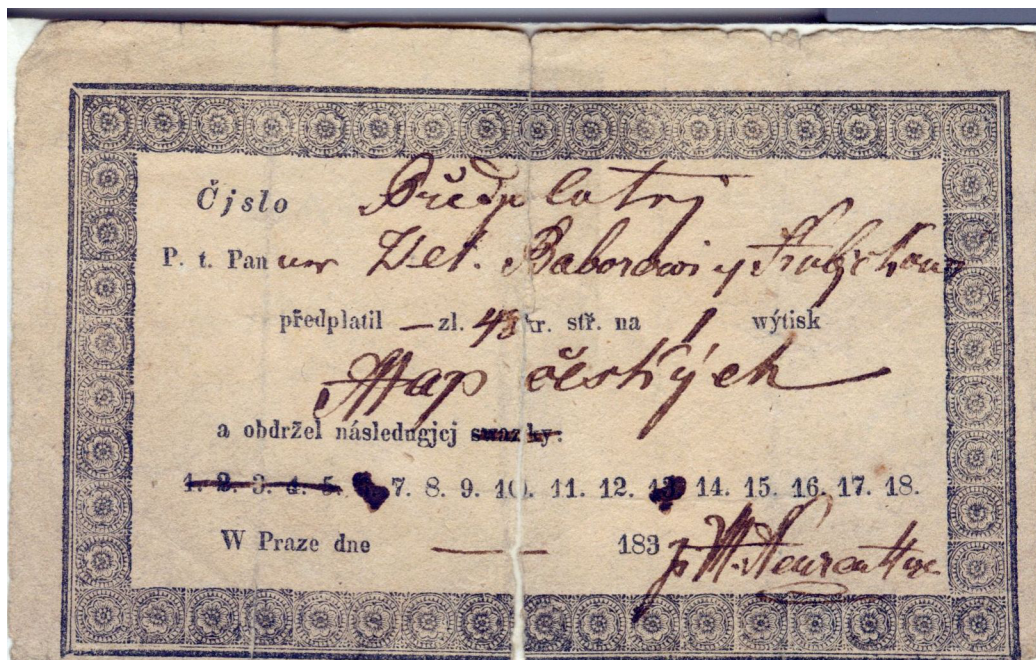 Čjslo Předplatnj
P. t. Pan Baborowi
předplatil — zl. 48 kr. stř. na 1 wýtisk
Map českých
a obdržel následugjcj swazky:
1. 2. 3. 4. 5. 7. 8. 9. 10. 11. 12. 13. 14. 15. 16. 17. 18.
W Praze dne — 183